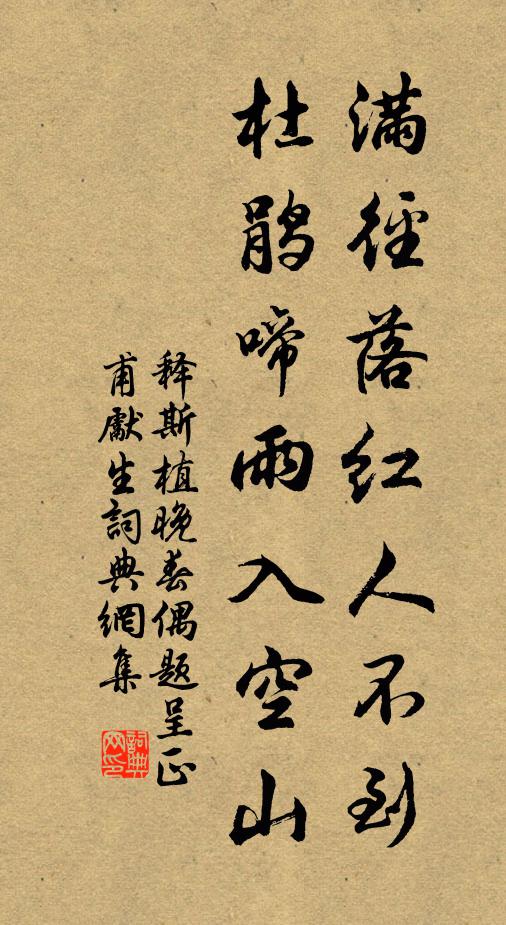 满径落红人不到
杜鹃啼雨入空山
释斯植晚春偶题呈正
甫献生詞典網集
詞典网印